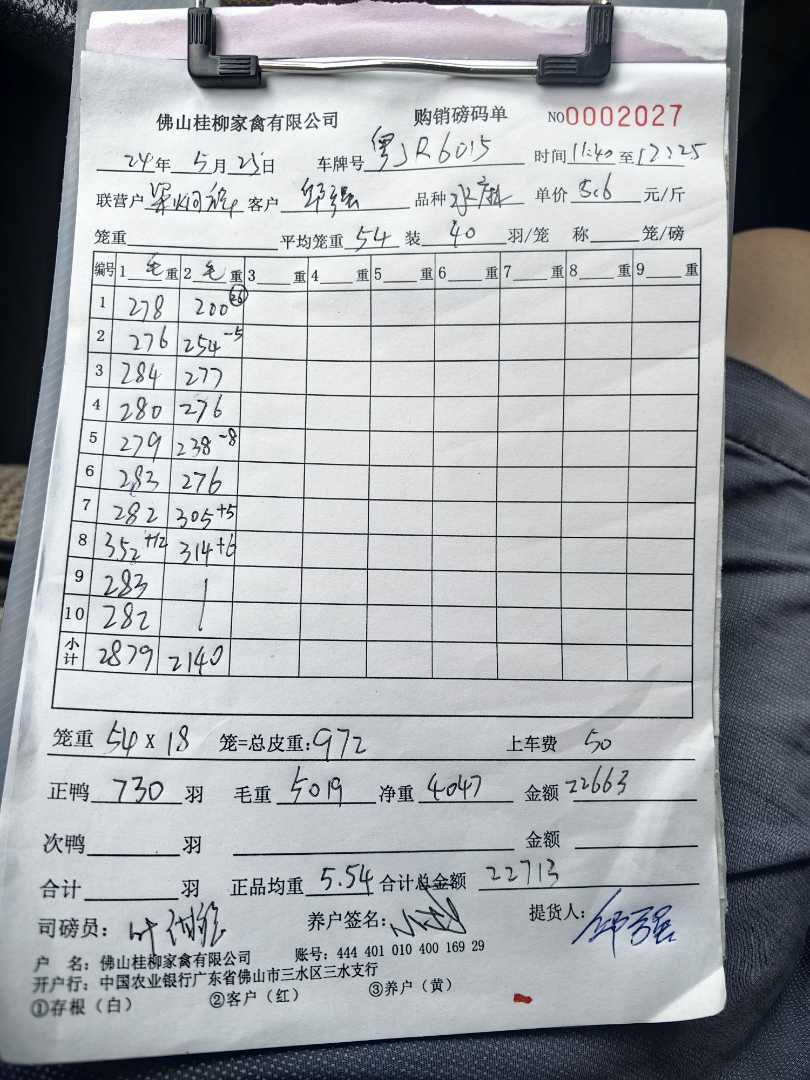 佛山桂柳家禽有限公司 购销磅码单 NO0002027
24年 5月 25日 车牌号 粤JR6015 时间 11:40 至 12:25
联营户 客户 邹强 品种 水鸭 单价 5.6 元/斤
笼重 平均笼重 54 装 40 羽/笼 称 笼/磅
编号 1 毛 重 2 毛 重 3 重 4 重 5 重 6 重 7 重 8 重 9 重
1 278 200 26
2 276 254 -5
3 284 277
4 280 276
5 279 238 -8
6 283 276
7 282 305 +5
8 352 +12 314 +6
9 283 /
10 282 /
小计 2879 2140
笼重 54 x 18 笼=总皮重: 972 上车费 50
正鸭 730 羽 毛重 5019 净重 4047 金额 22663
次鸭 羽 金额
合计 羽 正品均重 5.54 合计总金额 22713
司磅员: 叶 养户签名: 提货人: 邹强
户 名: 佛山桂柳家禽有限公司 账号: 444 401 010 400 169 29
开户行: 中国农业银行广东省佛山市三水区三水支行
①存根(白) ②客户(红) ③养户(黄)